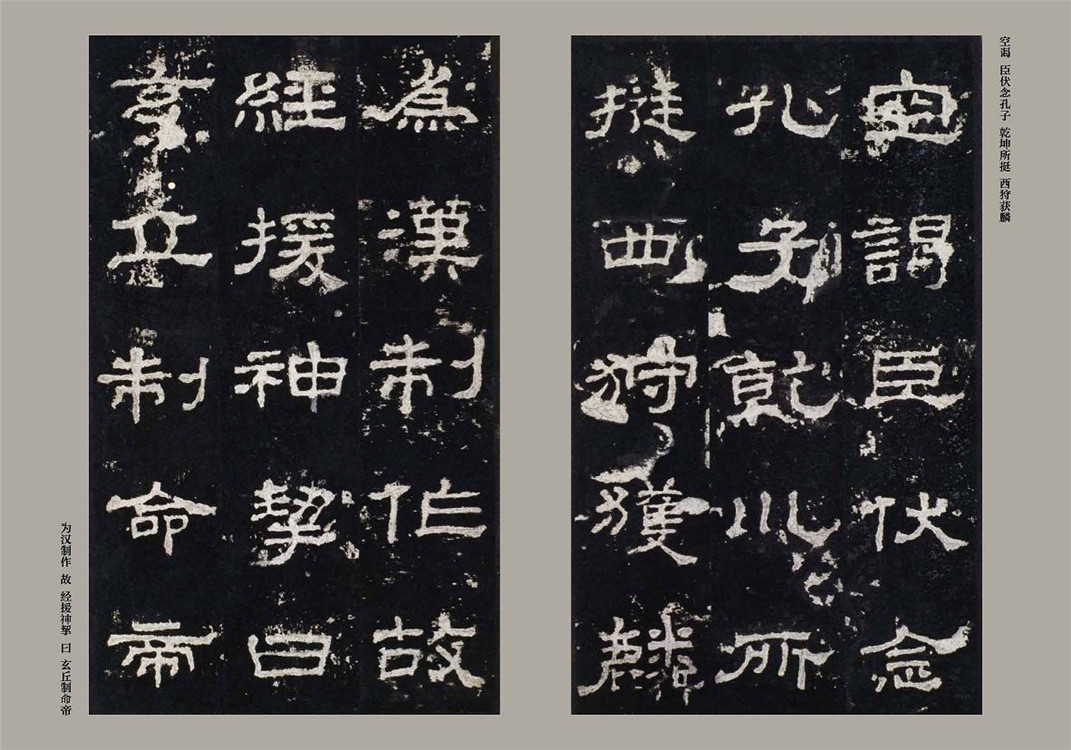 空谒 臣伏念孔子 乾坤所挺 西狩获麟
空謁臣伏念
孔子乾巛所
挺西狩獲麟
為漢制作故
經援神挈曰
玄丘制命帝
为汉制作 故 经援神挈 曰 玄丘制命帝